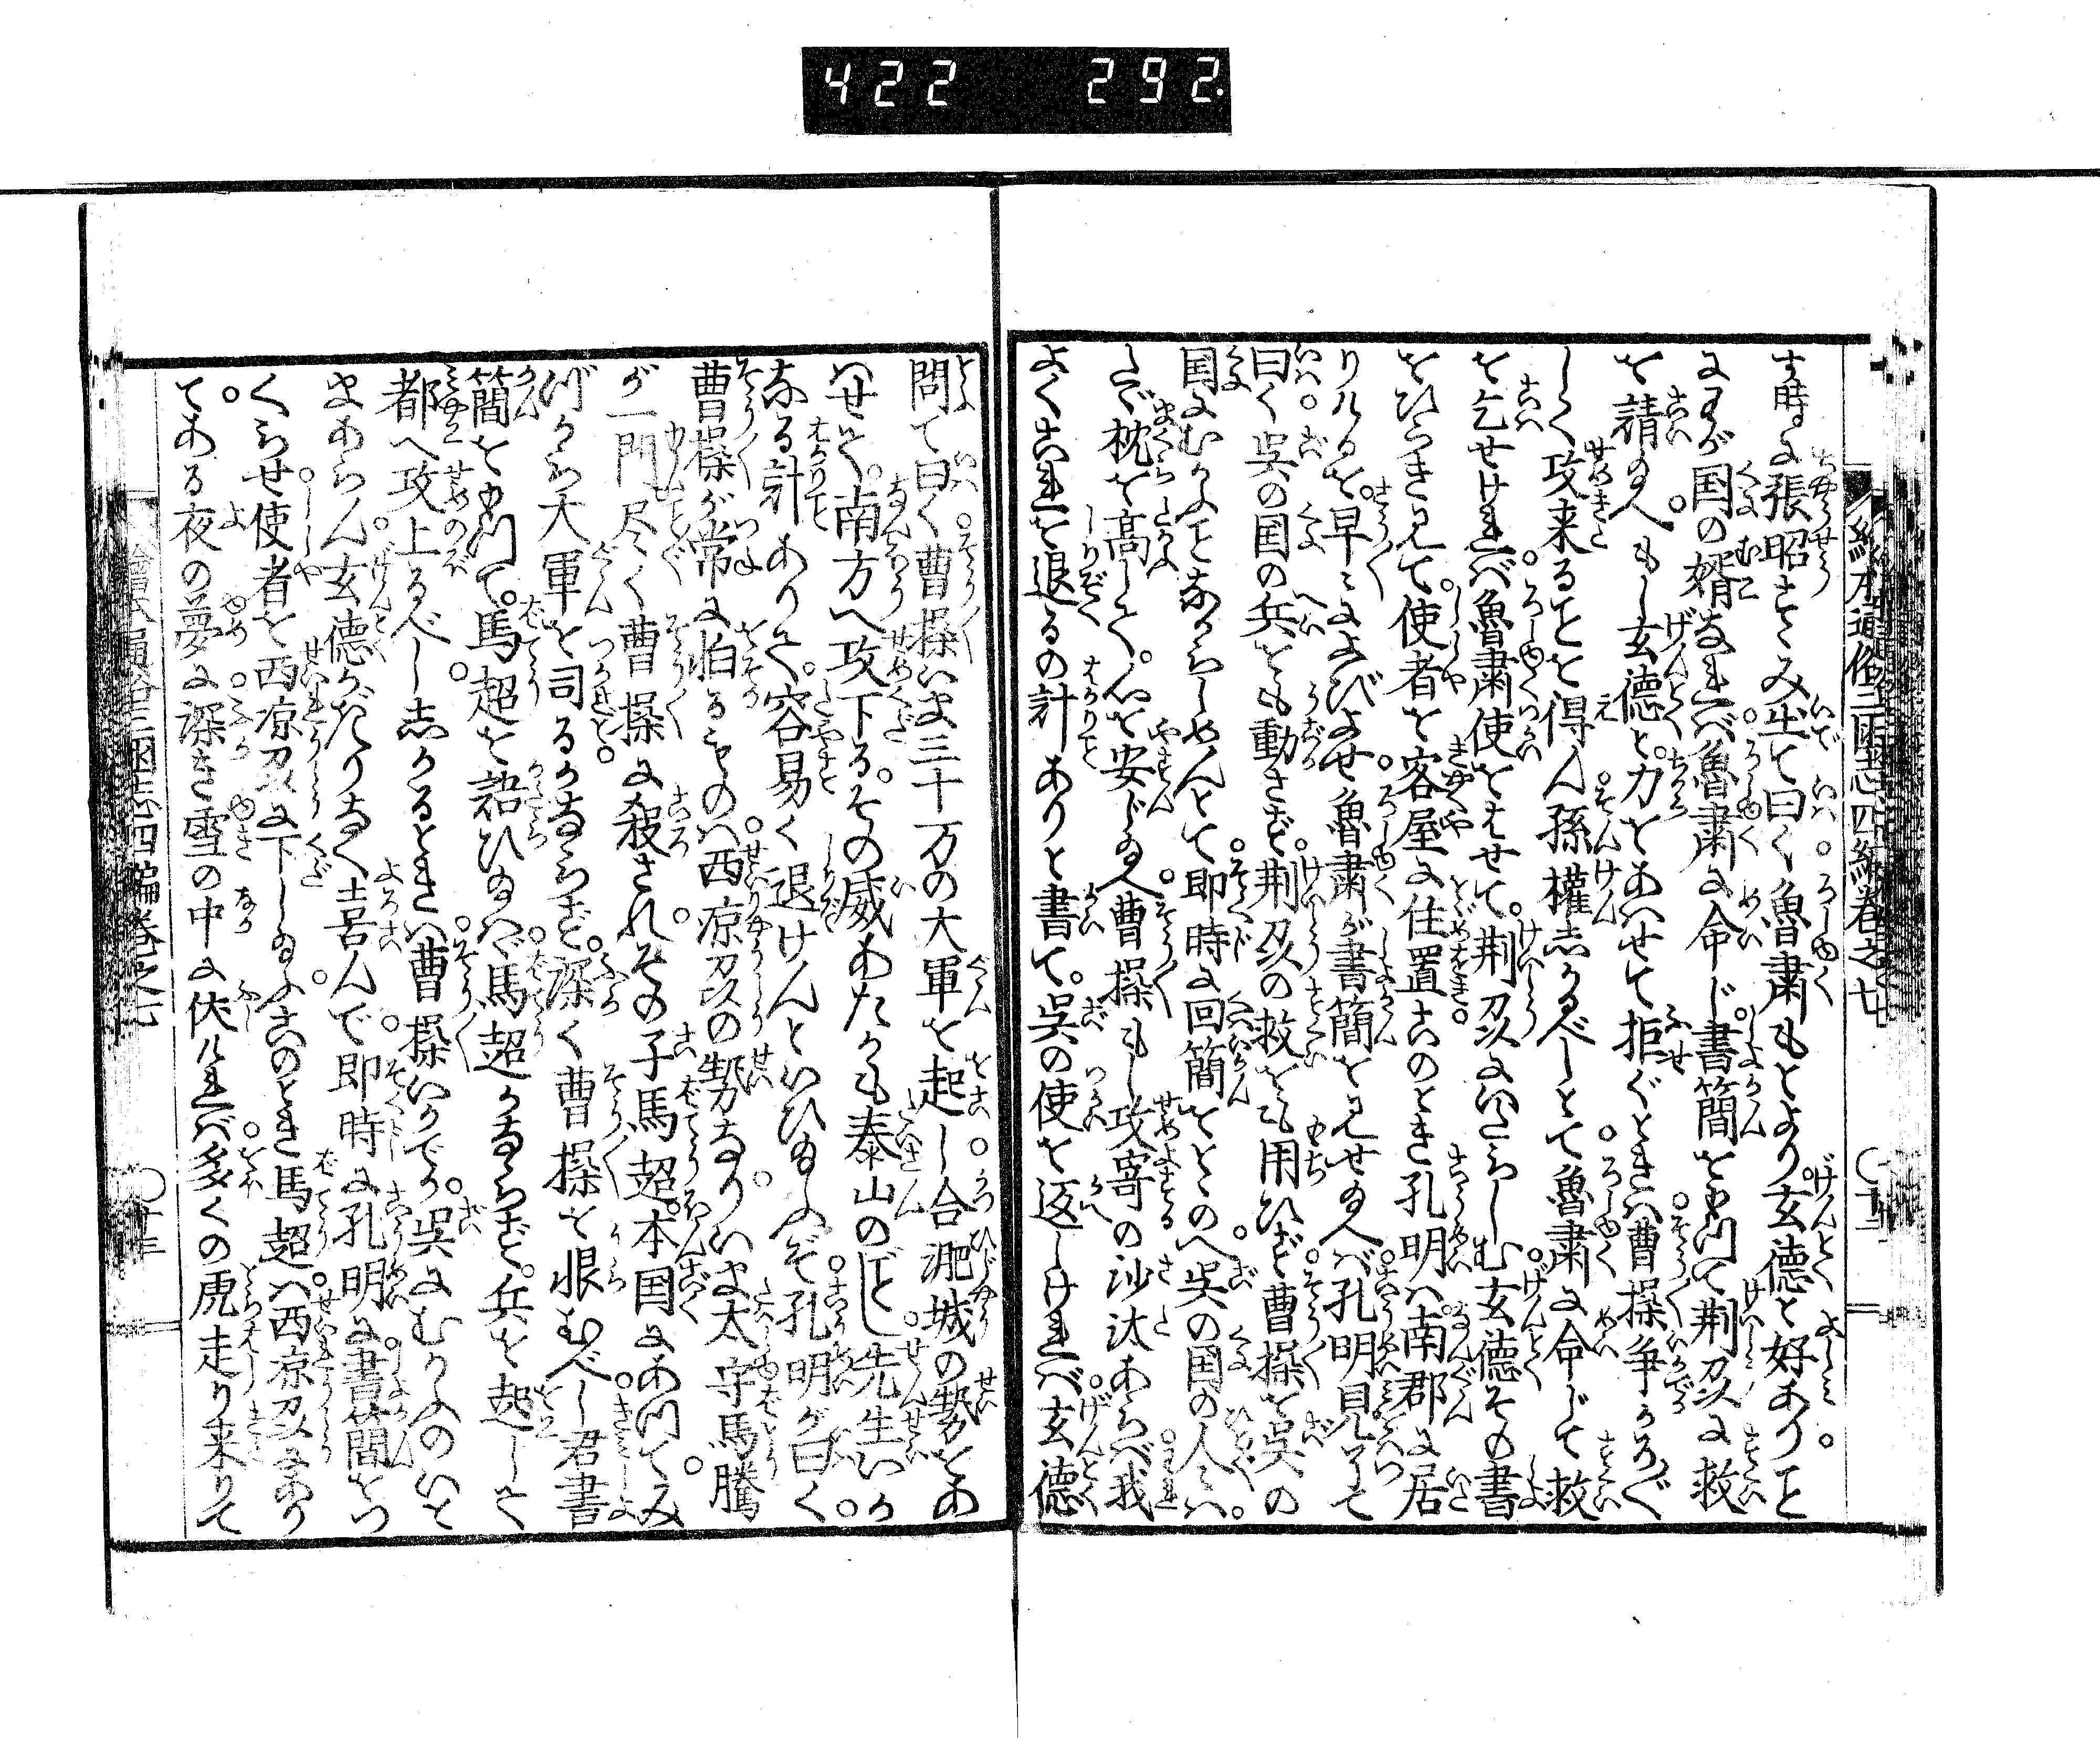 422 292.
絵本通俗三国志四編巻之七
す時に張昭すゝみ出て曰く魯粛もとより玄徳と好ありこと
にわが国の婿なれバ魯粛に命じ書簡をゆかて荆刕に救
を請給へもし玄徳と力をあハせて拒ぐときハ曹操争かかろ〴〵
しく攻来ることを得ん孫權しかるべしとて魯粛に命じて救
を乞せけれバ魯粛使をはせて荆刕にいたらしむ玄徳その書
をひらき見て使者を客屋に住置このとき孔明ハ南郡に居
りけるを早々によびよせ魯粛が書簡を見せ給へバ孔明見了て
曰く呉の国の兵をも動さず荆刕の救をも用ひず曹操を呉の
国にむかふことなからしめんとて即時に回簡をとゝのへ呉の国の人々ハ
たゞ枕を高くして心を安じ給へ曹操もし攻寄の沙汰あらバ我
よくこれを退るの計ありと書て呉の使を返しけれバ玄徳
問て曰く曹操いま三十万の大軍を起し合淝城の勢をあ
ハせて南方へ攻下るその威あたかも泰山のごとし先生いか
なる計ありて容易く退けんといひ給ふぞ孔明が曰く
曹操が常に怕るゝものハ西凉刕の勢なりいま太守馬騰
が一門尽く曹操に殺されその子馬超本国にあつてみ
づから大軍を司るかならず深く曹操を恨むべし君書
簡をゆかて馬超を語ひ給ハゞ馬超かならず兵を起して
都へ攻上るべししかるときハ曹操いかでか呉にむかふのいと
まあらん玄徳なゝめならず喜んで即時に孔明に書簡をつ
くらせ使者を西凉刕に下し給ふこのとき馬超ハ西凉刕にあり
てある夜の夢に深き雪の中に伏けれバ多くの虎走り来りて
絵本通俗三国志四編巻之七